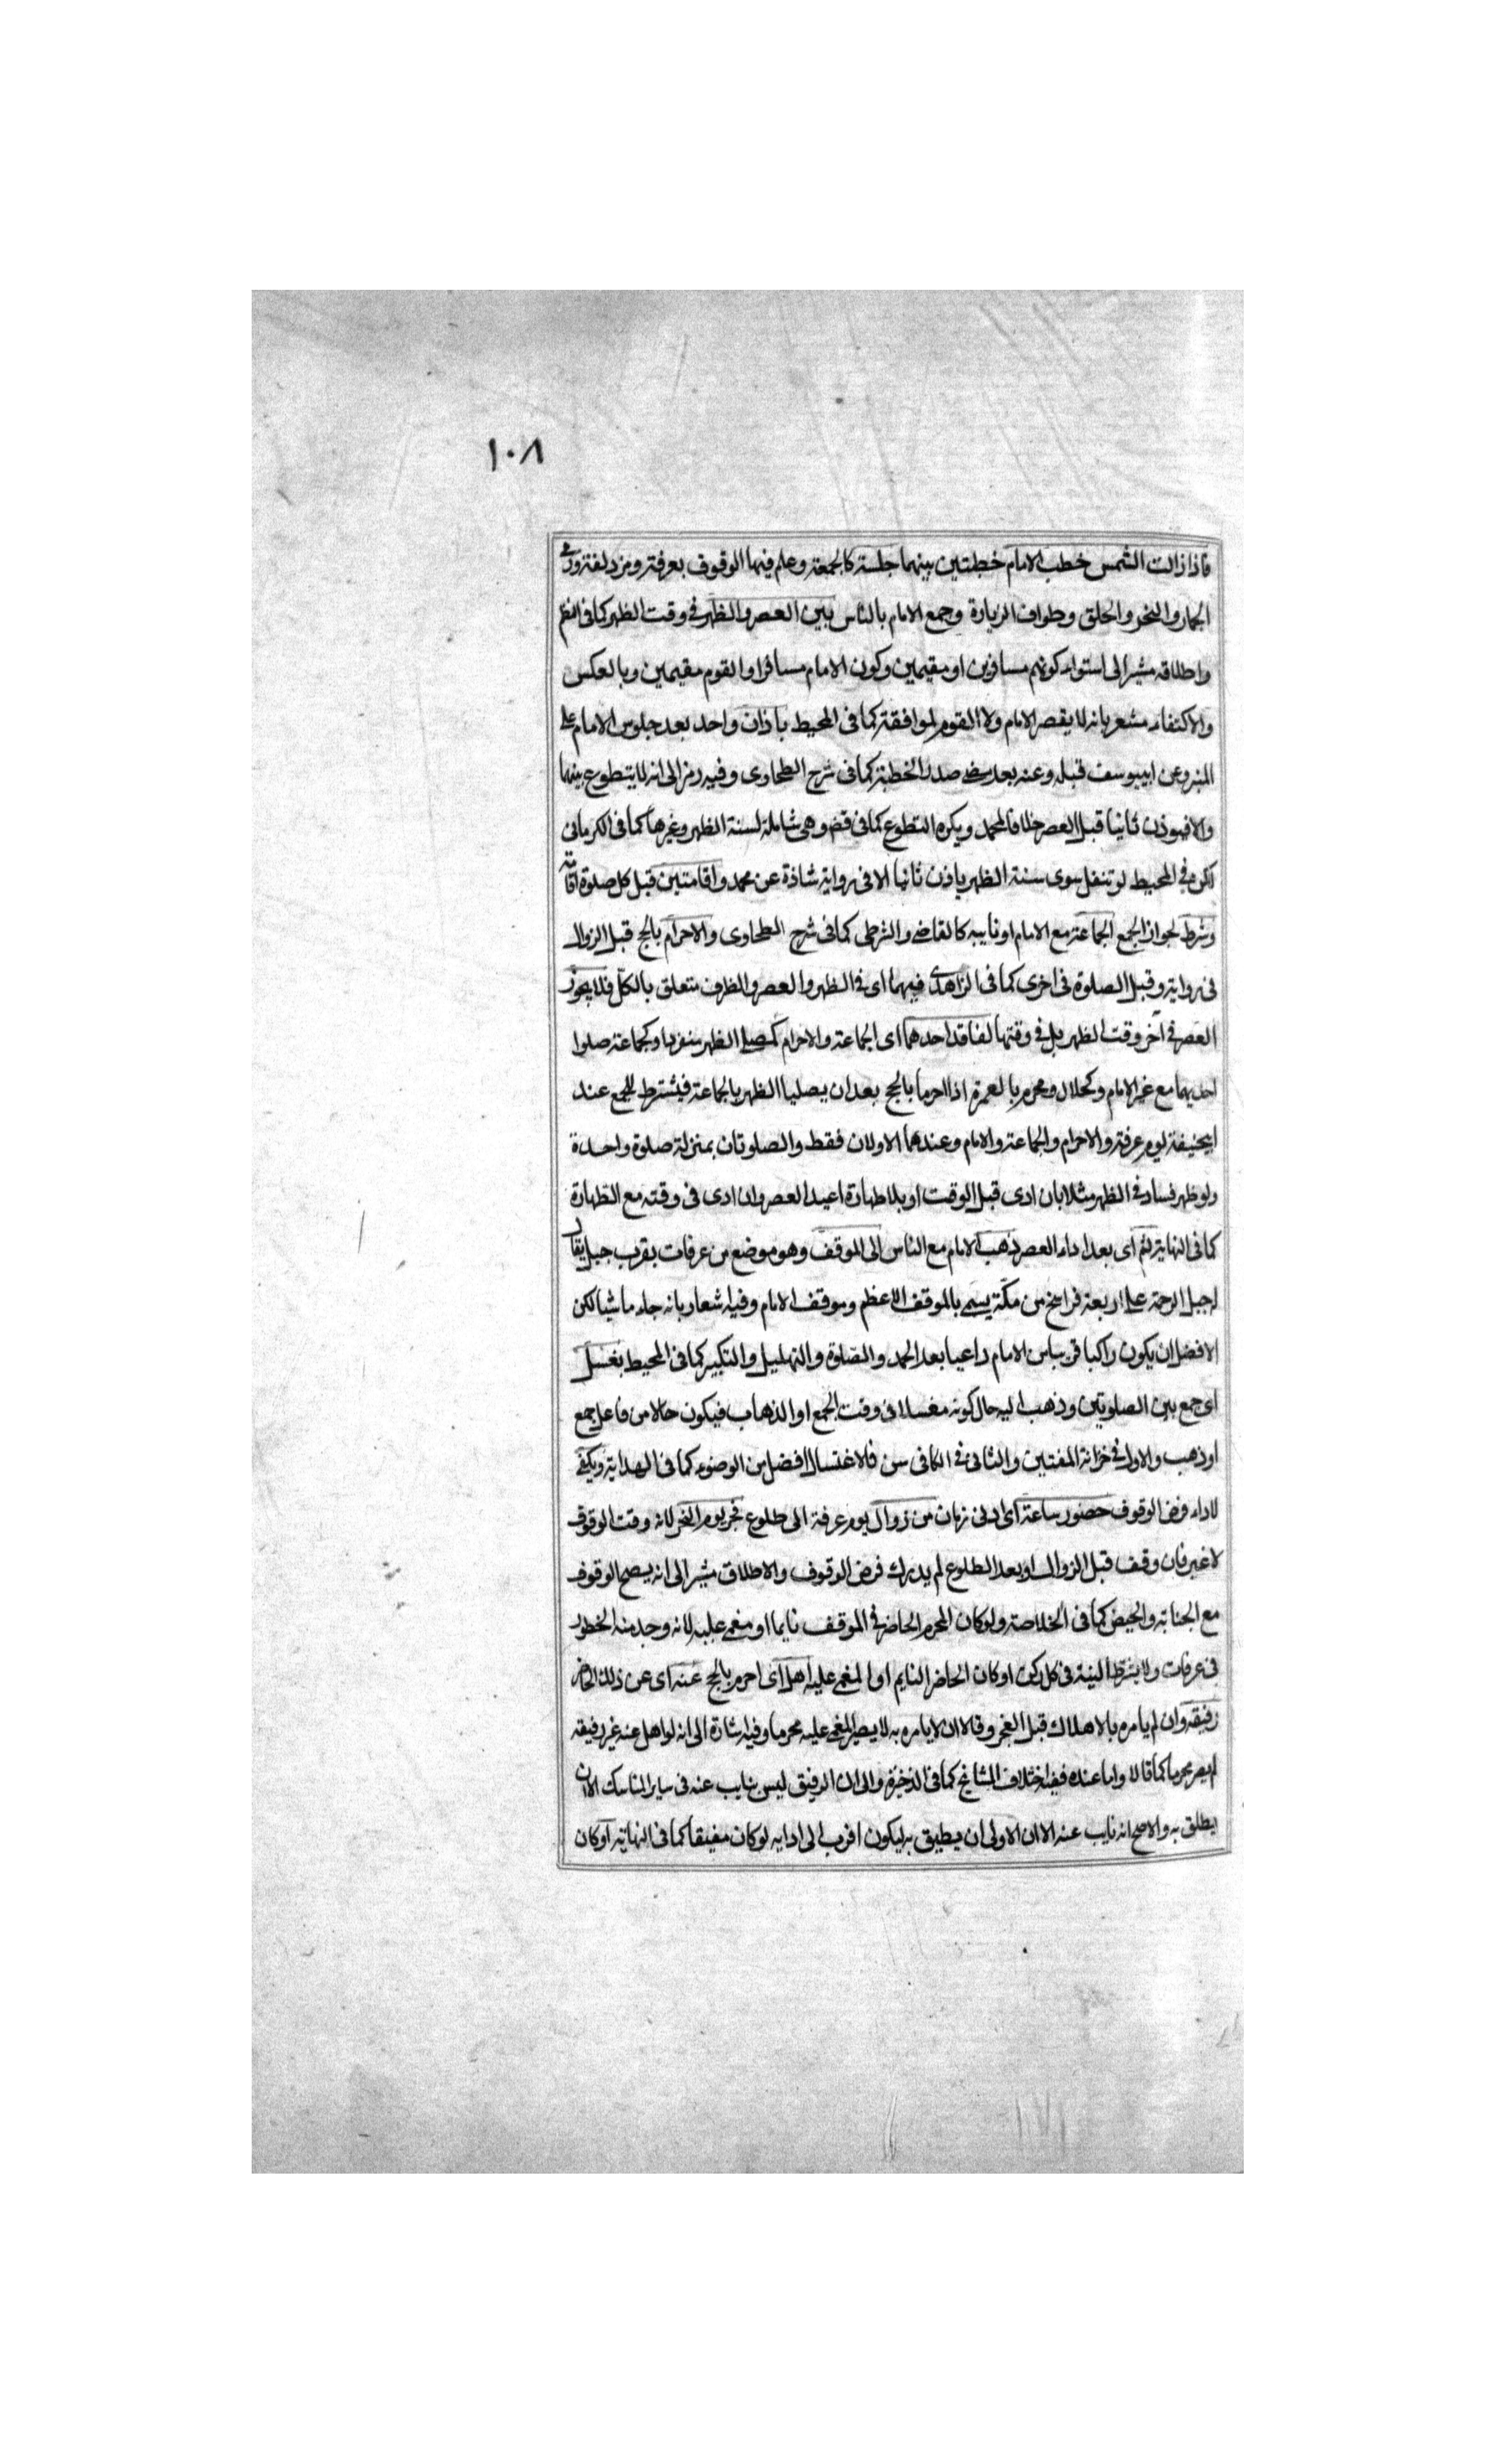 ١٠٨
فاذا زالت الشمس خطب الامام خطبتين بينهما جلسة كالجمعة وعلم فيها الوقوف بعرفة ومزدلفة ورمى
الجمار والنحر والحلق وطواف الزيارة وجمع الامام بالناس بين العصر والظهر فى وقت الظهر كما فى النظم
واطلاقه مشير الى استواء كونهم مسافرين او مقيمين وكون الامام مسافرا والقوم مقيمين وبالعكس
والاكتفاء مشعر بانه لا يقصر الامام ولا القوم لموافقته كما فى المحيط باذان واحد بعد جلوس الامام على
المنبر وعن ابيوسف قبله وعنه بعد مضى صدر الخطبة كما فى شرح الطحاوى وفيه رمز الى انه لا يتطوع بينهما
والا فيوذن ثانيا قبل العصر خلافا لمحمد ويكره التطوع كما فى قض وهى شاملة لسنة الظهر وغيرها كما فى الكرمانى
لكن فى المحيط لو تنفل سوى سنة الظهر ياذن ثانيا الا فى رواية شاذة عن محمد واقامتين قبل كل صلوة اقامة
وشرط لجواز الجمع الجماعة مع الامام او نايبه كالقاضى والشرطى كما فى شرح الطحاوى والاحرام بالحج قبل الزوال
فى رواية وقبل الصلوة فى اخرى كما فى الزاهدى فيهما اى فى الظهر والعصر والظرف متعلق بالكل فلا يجوز
العصر فى آخر وقت الظهر بل فى وقتها لفاقد احدهما اى الجماعة والاحرام كمصلى الظهر منفردا وكجماعة صلوا
احديهما مع غير الامام وكحلال ومحرم بالعمرة اذا احرما بالحج بعد ان يصليا الظهر بالجماعة فيشترط للجمع عند
ابيحنيفة يوم عرفة والاحرام والجماعة والامام وعندهما الاولان فقط والصلوتان بمنزلة صلوة واحدة
ولو ظهر فساد فى الظهر مثلا بان ادى قبل الوقت او بلا طهارة اعيد العصر وان ادى فى وقته مع الطهارة
كما فى النهاية ثم اى بعد اداء العصر ذهب الامام مع الناس الى الموقف وهو موضع من عرفات بقرب جبل يقال
له جبل الرحمة على اربعة فراسخ من مكة يسمى بالموقف الاعظم وموقف الامام وفيه اشعار بانه جاء ماشيا لكن
الافضل ان يكون راكبا قريبا من الامام داعيا بعد الحمد والصلوة والتهليل والتكبير كما فى المحيط بغسل
اى جمع بين الصلوتين وذهب اليه حال كونه مغتسلا فى وقت الجمع او الذهاب فيكون حالا من فاعل جمع
او ذهب والاول فى خزانة المفتين والثانى فى الكافى سن فالاغتسال افضل من الوضوء كما فى الهداية ويكفى
لاداء فرض الوقوف حضور ساعة اى ادنى زمان من زوال يوم عرفة الى طلوع فجر يوم النحر لانه وقت الوقوف
لا غير فان وقف قبل الزوال او بعد الطلوع لم يدرك فرض الوقوف والاطلاق مشير الى انه يصح الوقوف
مع الجنابة والحيض كما فى الخلاصة ولو كان المحرم الحاضر فى الموقف نايما او مغمى عليه لانه وجد منه الحضور
فى عرفات ولا يشرط النية فى كل ركن او كان الحاضر النايم او المغمى عليه اهل اى احرم بالحج عنه اى عن ذلك الحاضر
رفيقه وان لم يامره بالاهلال قبل الفجر وقالا ان لا يامره به لا يصير المغمى عليه محرما وفيه اشارة الى انه لو اهل عنه غير رفيقه
لم يصر محرما كما قالا واما عنده ففيه اختلاف المشايخ كما فى الذخيرة والى ان الرفيق ليس بنايب عنه فى ساير المناسك الا ان
يطلق به والاصح انه نايب عنه الا ان الاولى ان يطيق به ليكون اقرب الى ادايه لو كان مفيقا كما فى النهاية او كان